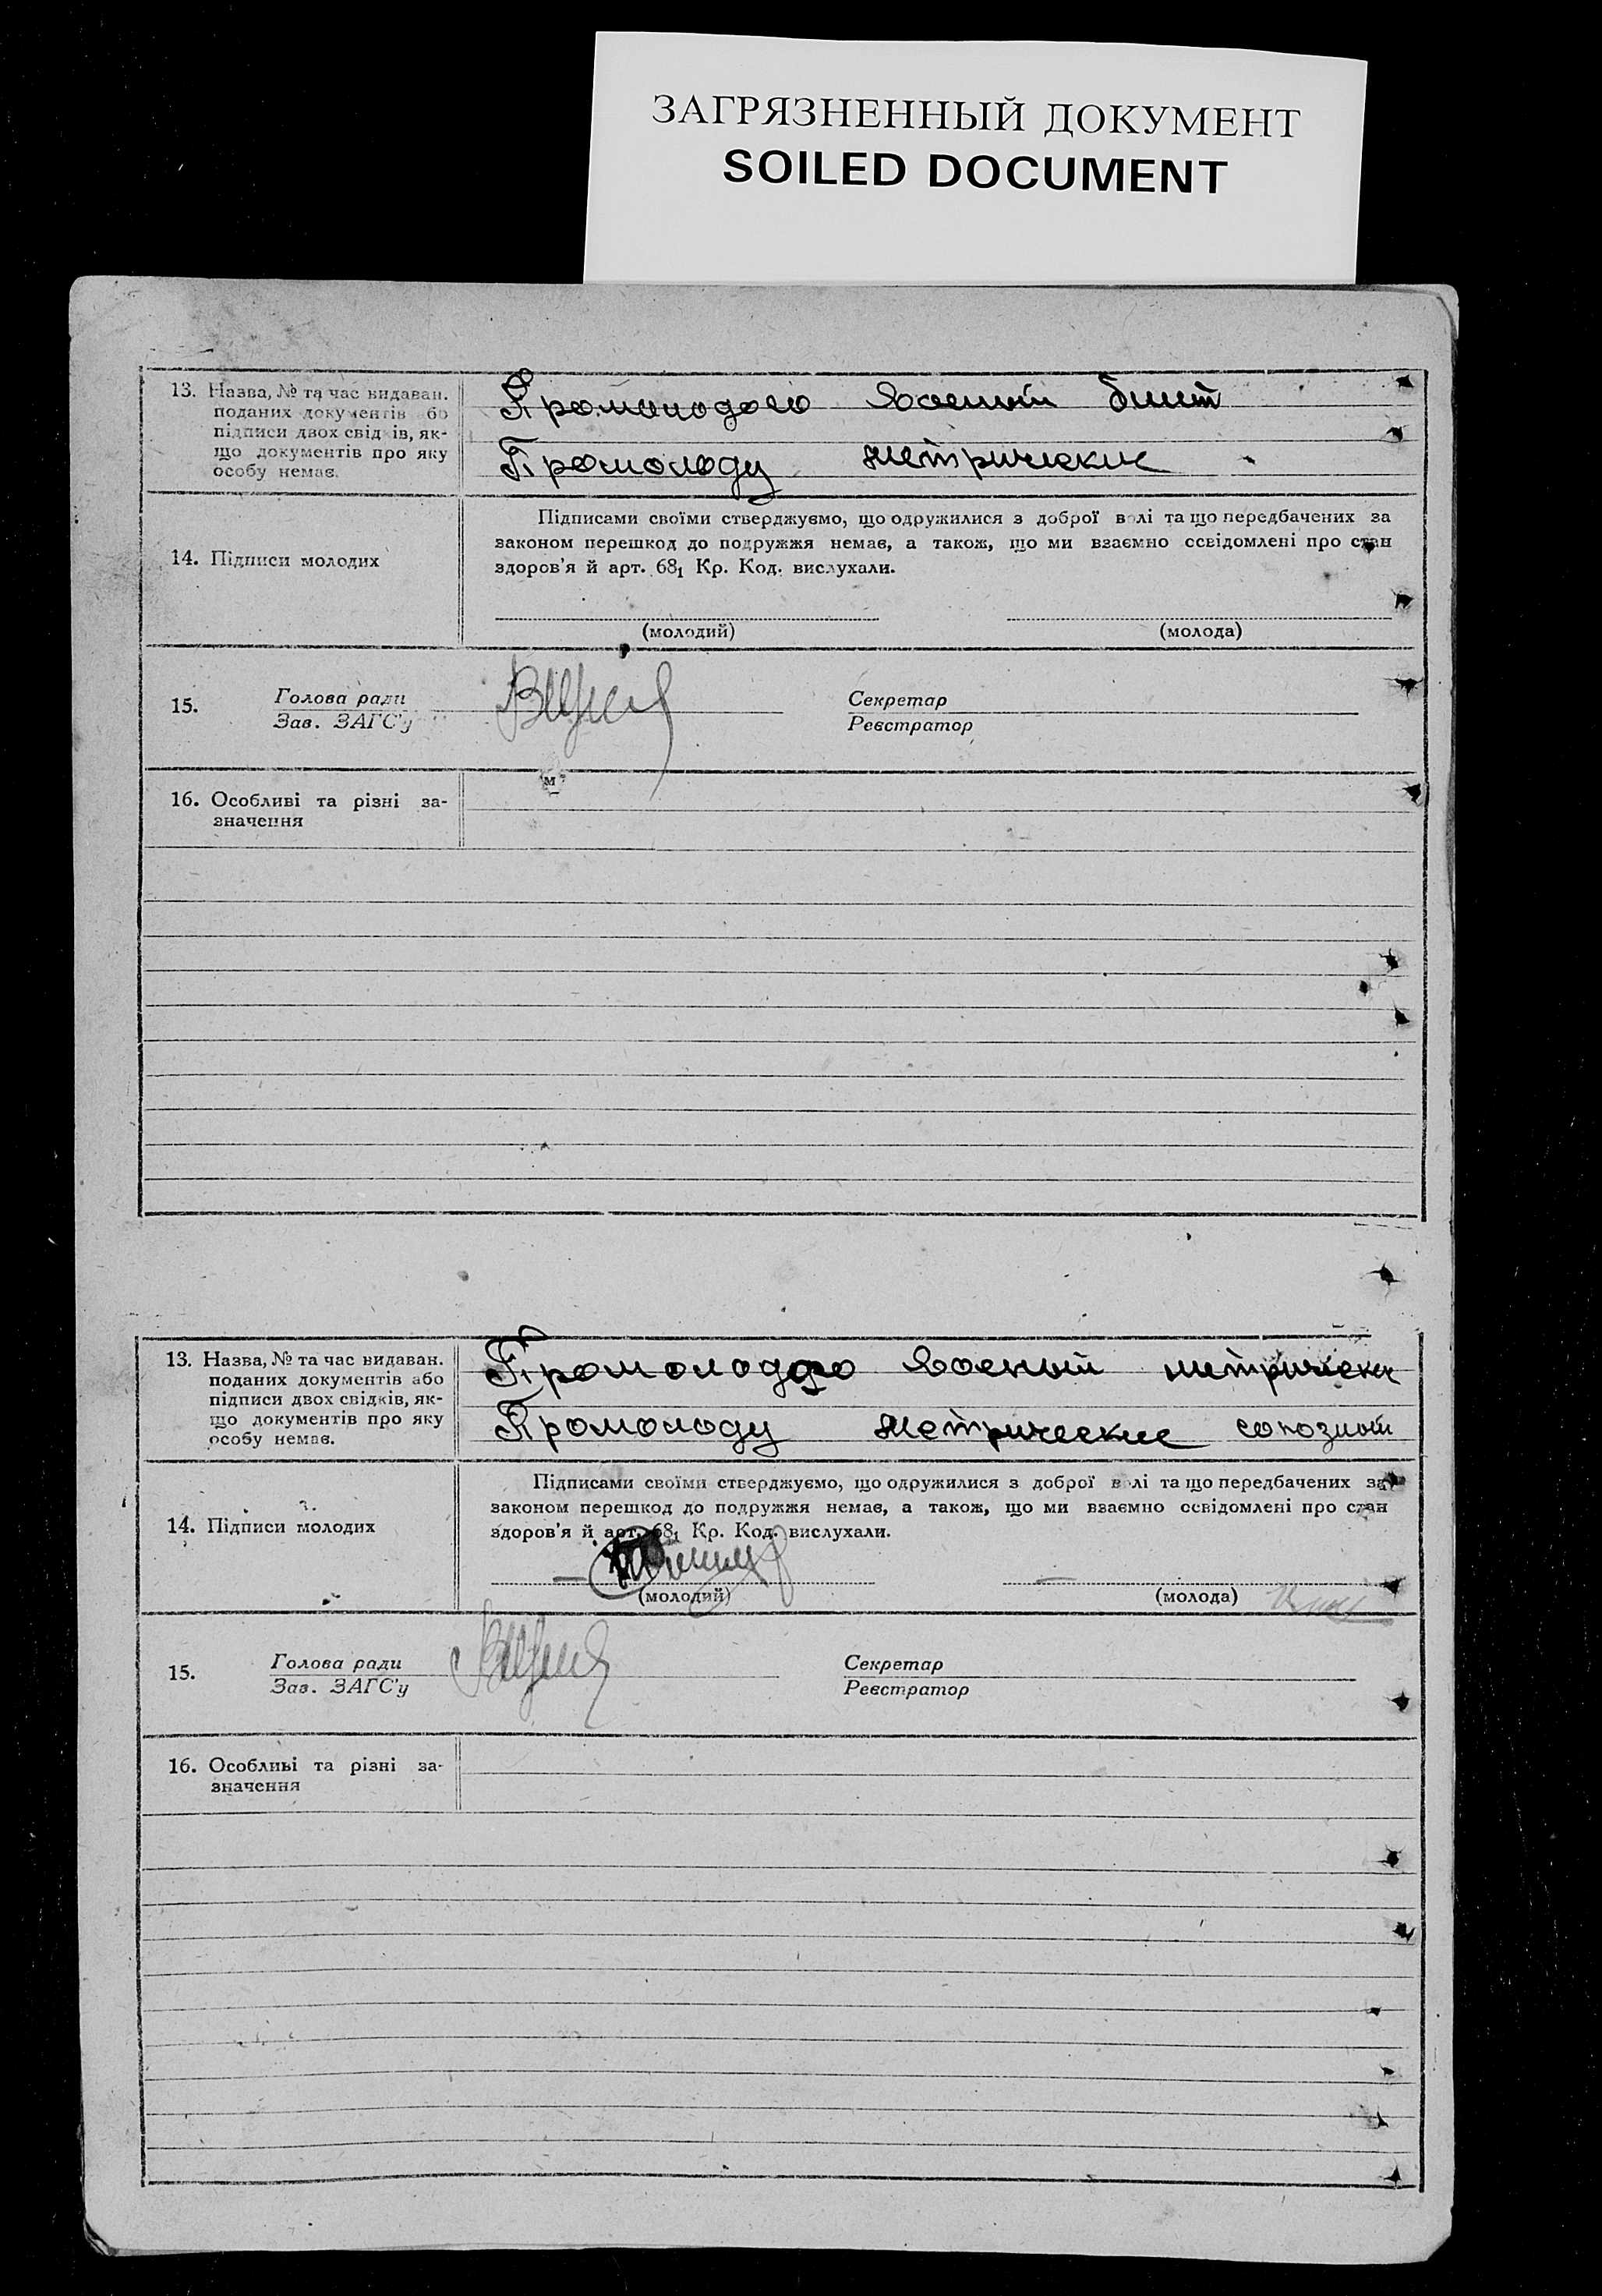 ЗАГРЯЗНЕННЫЙ ДОКУМЕНТ
SOILED DOCUMENT
13. Назва, № та час видаван.
поданих документів або
підписи двох свідків, як-
що документів про яку
особу немає.
Про молодого военый билет
Про молоду метрические
14. Підписи молодих
Підписами своїми стверджуємо, що одружилися з доброї волі та що передбачених за
законом перешкод до подружжя немає, а також, що ми взаємно освідомлені про стан
здоров'я й арт. 68₁ Кр. Код. вислухали.
(молодий) (молода)
15. Голова ради
Зав. ЗАГС'у
Секретар
Реєстратор
16. Особливі та різні за-
значення
13. Назва, № та час видаван.
поданих документів або
підписи двох свідків, як-
що документів про яку
особу немає.
Про молодого военый
Про молоду метрические союзный
14. Підписи молодих
Підписами своїми стверджуємо, що одружилися з доброї волі та що передбачених за
законом перешкод до подружжя немає, а також, що ми взаємно освідомлені про стан
здоров'я й арт. 68₁ Кр. Код. вислухали.
(молодий) (молода)
15. Голова ради
Зав. ЗАГС'у
Секретар
Реєстратор
16. Особливі та різні за-
значення